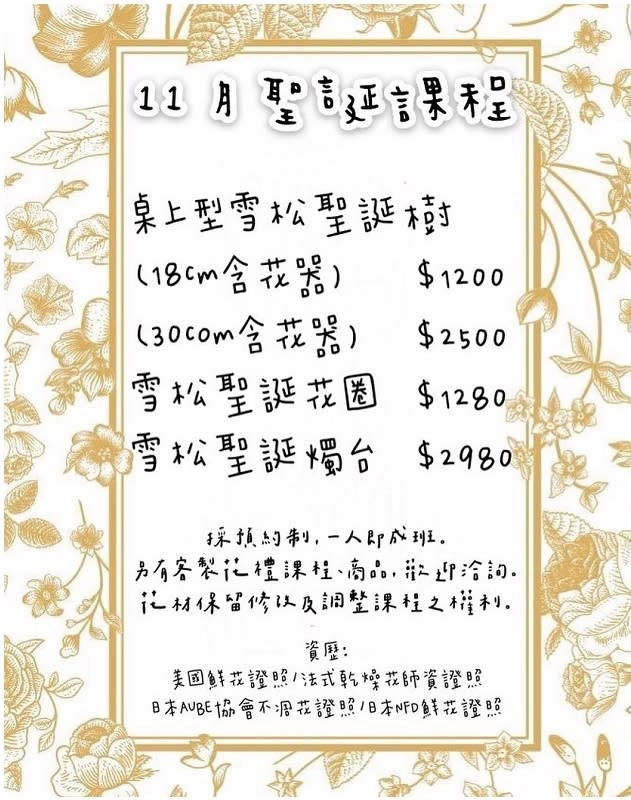 11月聖誕課程
桌上型雪松聖誕樹
(18cm含花器) $1200
(30com含花器) $2500
雪松聖誕花圈 $1280
雪松聖誕燭台 $2980
採預約制,一人即成班。
另有客製花禮課程、商品,歡迎洽詢。
花材保留修改及調整課程之權利。
資歷:
美國鮮花證照/法式乾燥花師資證照
日本AUBE協會不凋花證照/日本NFD鮮花證照